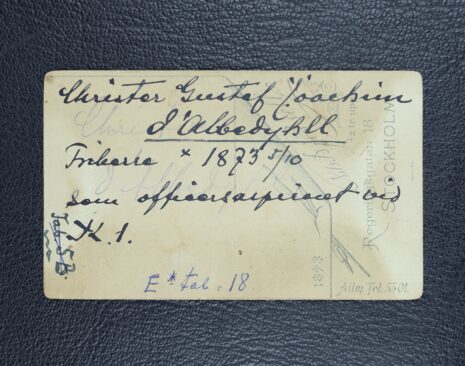 Christer Gustaf Joachim
d'Albedyhll
Friherre * 1873 5/10
som officersaspirant vid
K. 1.
Tab 5 B.
E* tab. 18
1893
Regeringsgatan 18
STOCKHOLM
Allm. Tel. 5501.